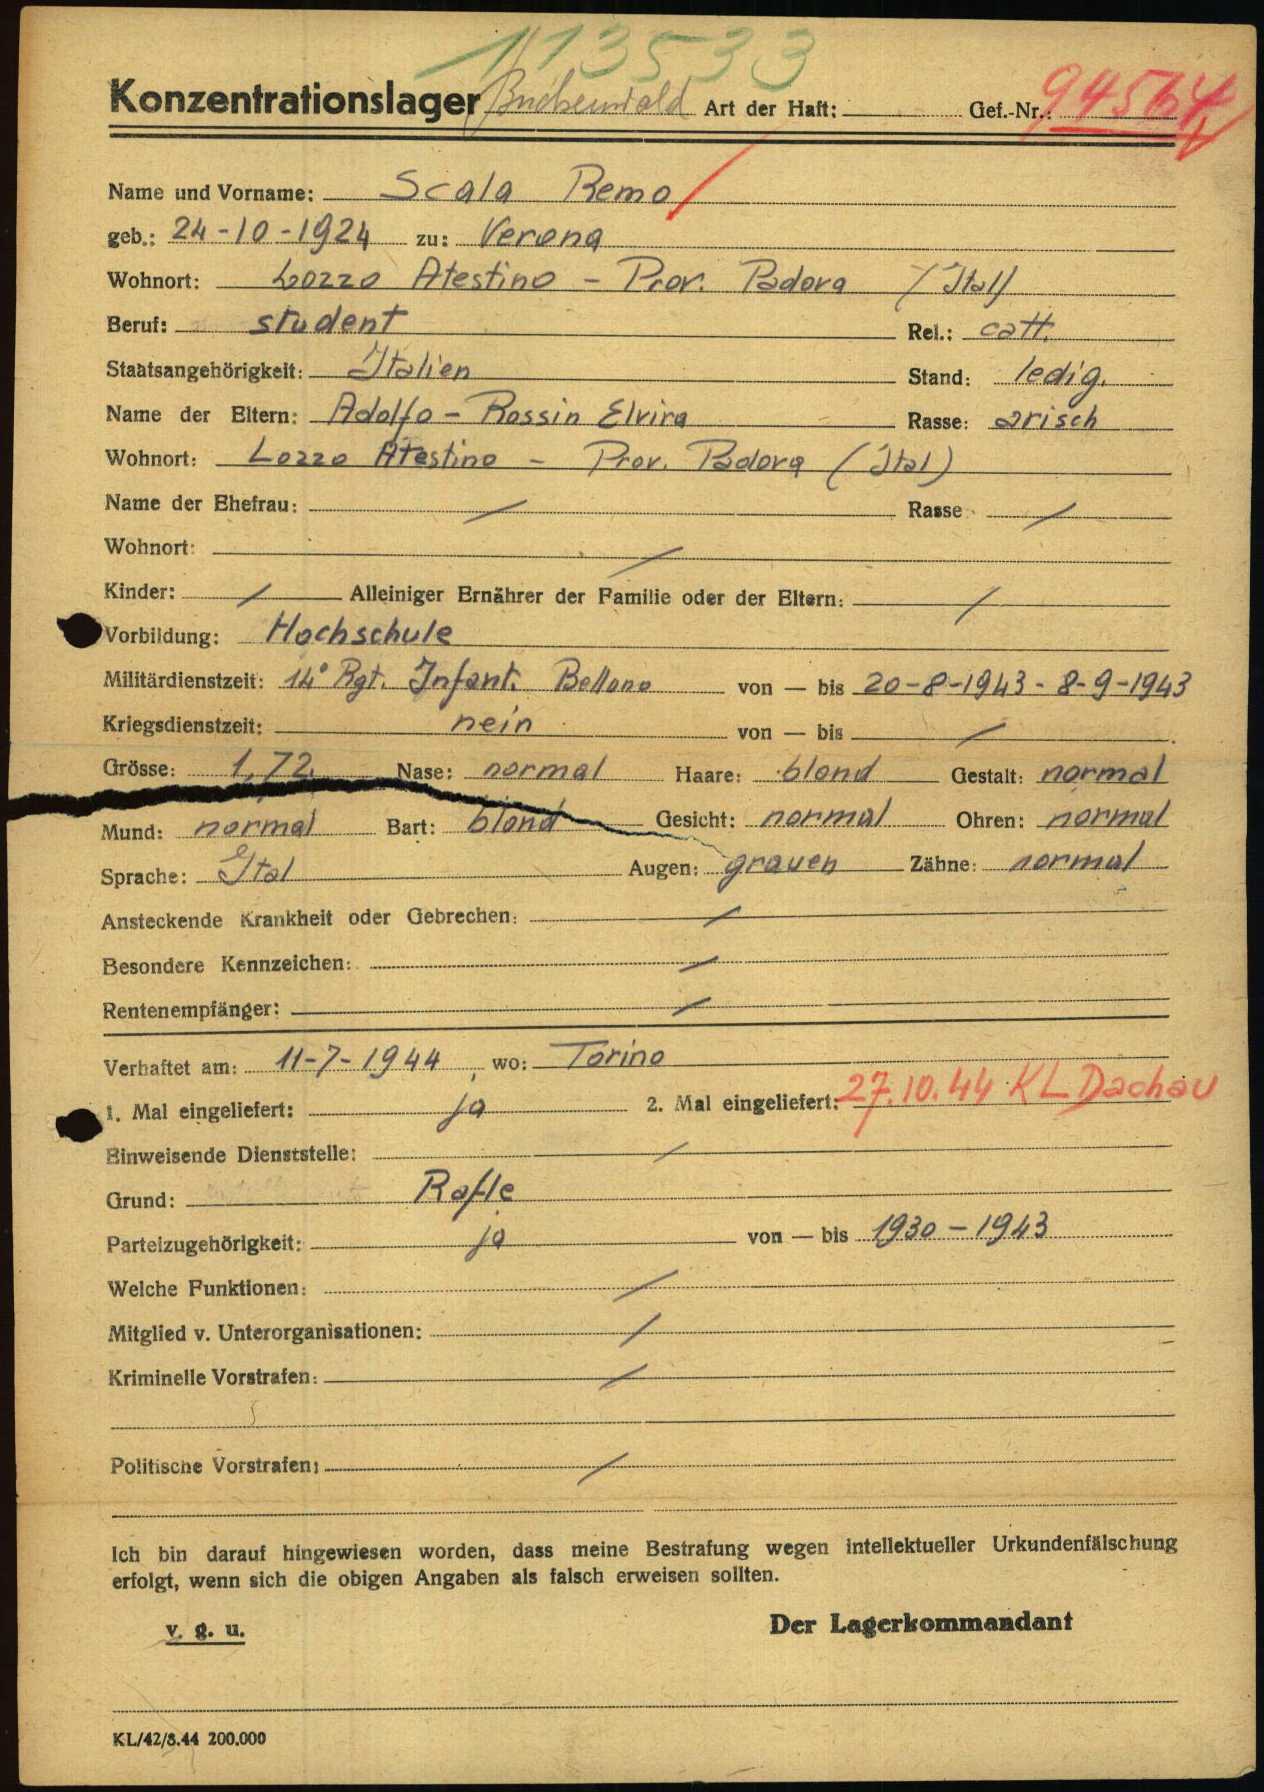 113533
Konzentrationslager Buchenwald Art der Haft: Gef.-Nr.: 94564
Name und Vorname: Scala Remo
geb.: 24-10-1924 zu: Verona
Wohnort: Lozzo Atestino - Prov. Padova (Ital)
Beruf: student Rel.: catt.
Staatsangehörigkeit: Italien Stand: ledig.
Name der Eltern: Adolfo - Rossin Elvira Rasse: arisch
Wohnort: Lozzo Atestino - Prov. Padova (Ital)
Name der Ehefrau: / Rasse /
Wohnort: /
Kinder: / Alleiniger Ernährer der Familie oder der Eltern: /
Vorbildung: Hochschule
Militärdienstzeit: 14° Rgt. Infant. Belluno von — bis 20-8-1943 - 8-9-1943
Kriegsdienstzeit: nein von — bis /
Grösse: 1,72 Nase: normal Haare: blond Gestalt: normal
Mund: normal Bart: blond Gesicht: normal Ohren: normal
Sprache: Ital Augen: grauen Zähne: normal
Ansteckende Krankheit oder Gebrechen: /
Besondere Kennzeichen: /
Rentenempfänger: /
Verhaftet am: 11-7-1944, wo: Torino
1. Mal eingeliefert: ja 2. Mal eingeliefert: 27.10.44 KL Dachau
Einweisende Dienststelle: /
Grund: Rafle
Parteizugehörigkeit: ja von — bis 1930 - 1943
Welche Funktionen: /
Mitglied v. Unterorganisationen: /
Kriminelle Vorstrafen: /
Politische Vorstrafen: /
Ich bin darauf hingewiesen worden, dass meine Bestrafung wegen intellektueller Urkundenfälschung
erfolgt, wenn sich die obigen Angaben als falsch erweisen sollten.
v. g. u. Der Lagerkommandant
KL/42/8.44 200.000